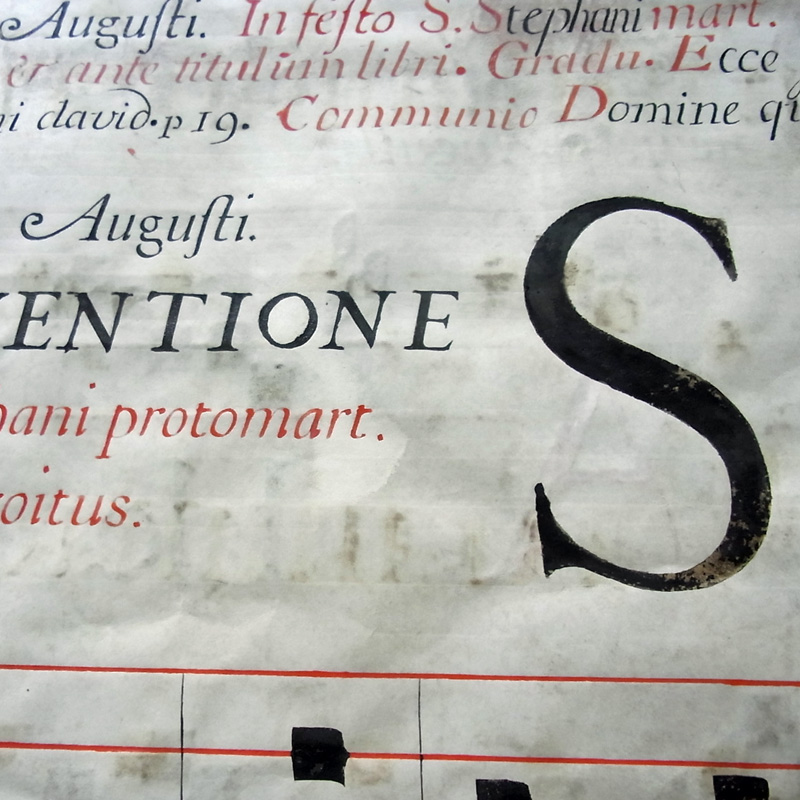 Augusti. In festo S. Stephani mart.
& ante titulum libri. Gradu. Ecce
ni david. p 19. Communio Domine qu
Augusti.
VENTIONE
pani protomart.
oitus.
S